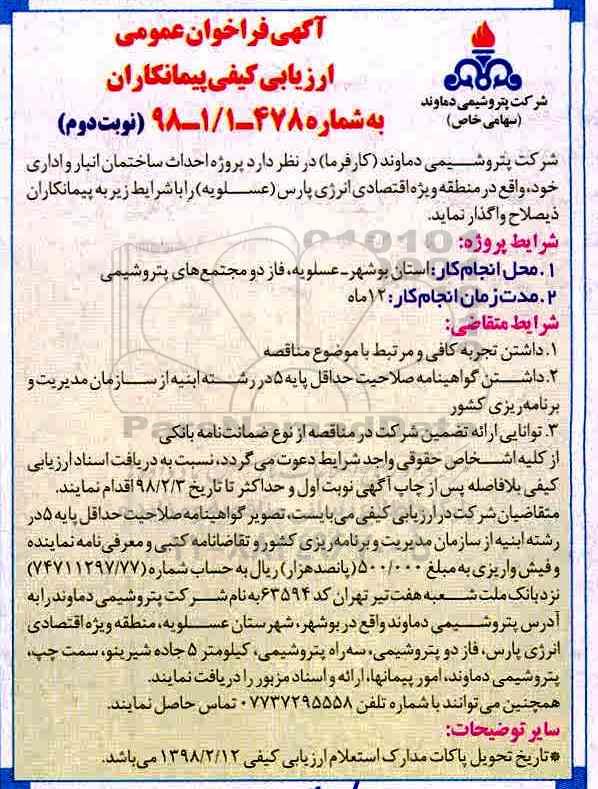 آگهی فراخوان عمومی
ارزیابی کیفی پیمانکاران
به شماره ۴۷۸-۱/۱-۹۸ (نوبت دوم)
شرکت پتروشیمی دماوند
(سهامی خاص)
شرکت پتروشیمی دماوند (کارفرما) در نظر دارد پروژه احداث ساختمان انبار و اداری
خود، واقع در منطقه ویژه اقتصادی انرژی پارس (عسلویه) را با شرایط زیر به پیمانکاران
ذیصلاح واگذار نماید.
شرایط پروژه:
۱. محل انجام کار: استان بوشهر-عسلویه، فاز دو مجتمع‌های پتروشیمی
۲. مدت زمان انجام کار: ۱۲ ماه
شرایط متقاضی:
۱. داشتن تجربه کافی و مرتبط با موضوع مناقصه
۲. داشتن گواهینامه صلاحیت حداقل پایه ۵ در رشته ابنیه از سازمان مدیریت و
برنامه‌ریزی کشور
۳. توانایی ارائه تضمین شرکت در مناقصه از نوع ضمانت‌نامه بانکی
از کلیه اشخاص حقوقی واجد شرایط دعوت می گردد، نسبت به دریافت اسناد ارزیابی
کیفی بلافاصله پس از چاپ آگهی نوبت اول و حداکثر تا تاریخ ۹۸/۲/۳ اقدام نمایند.
متقاضیان شرکت در ارزیابی کیفی می‌بایست، تصویر گواهینامه صلاحیت حداقل پایه ۵ در
رشته ابنیه از سازمان مدیریت و برنامه‌ریزی کشور و تقاضانامه کتبی و معرفی‌نامه نماینده
و فیش واریزی به مبلغ ۵۰۰/۰۰۰ (پانصد هزار) ریال به حساب شماره (۷۴۷۱۱۲۹۷/۷۷)
نزد بانک ملت شعبه هفت تیر تهران کد ۶۳۵۹۴ به نام شرکت پتروشیمی دماوند را به
آدرس پتروشیمی دماوند واقع در بوشهر، شهرستان عسلویه، منطقه ویژه اقتصادی
انرژی پارس، فاز دو پتروشیمی، سه‌راه پتروشیمی، کیلومتر ۵ جاده شیرینو، سمت چپ،
پتروشیمی دماوند، امور پیمانها، ارائه و اسناد مزبور را دریافت نمایند.
همچنین می‌توانند با شماره تلفن ۰۷۷۳۷۲۹۵۵۵۸ تماس حاصل نمایند.
سایر توضیحات:
*تاریخ تحویل پاکات مدارک استعلام ارزیابی کیفی ۱۳۹۸/۲/۱۲ می‌باشد.
ParsNamadData